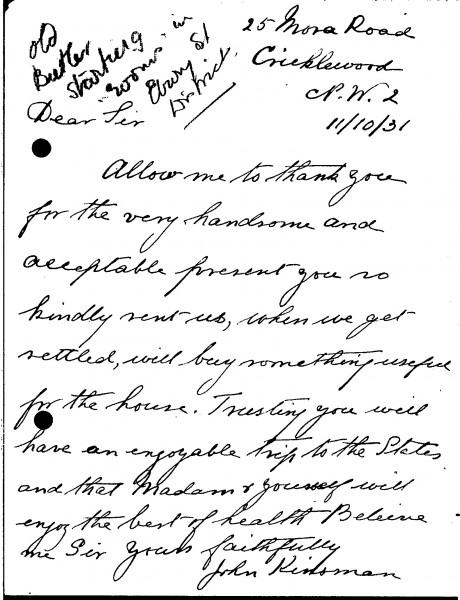 25 Mora Road
Cricklewood
N.W.2
11/10/31
Old
Butler
starting
"rooms" in
Ebury St
District.
Dear Sir
Allow me to thank you
for the very handsome and
acceptable present you so
kindly sent us, when we get
settled, will buy something useful
for the house. Trusting you will
have an enjoyable trip to the States
and that Madam & yourself will
enjoy the best of health Believe
me Sir yours faithfully
John Kinsman